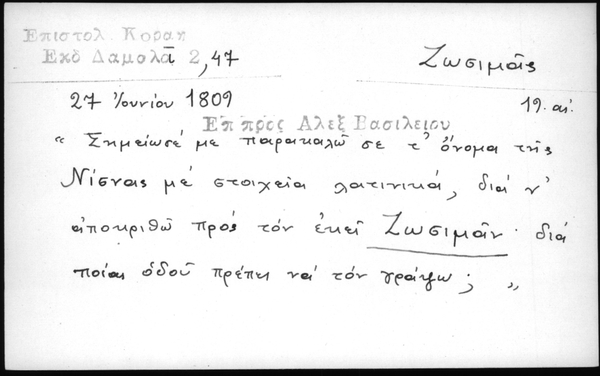 Επιστολ. Κοραη
Εκδ Δαμαλᾶ 2, 47
Ζωσιμᾶς
27 Ἰουνίου 1809
19. αἰ.
Επ προς Αλεξ Βασιλειου
« Σημείωσέ με παρακαλῶ σε τ' ὄνομα τῆς
Νίσνας μέ στοιχεῖα λατινικά, διά ν'
ἀποκριθῶ πρός τόν ἐκεῖ Ζωσιμᾶν· διά
ποίας ὁδοῦ πρέπει νά τόν γράψω; »